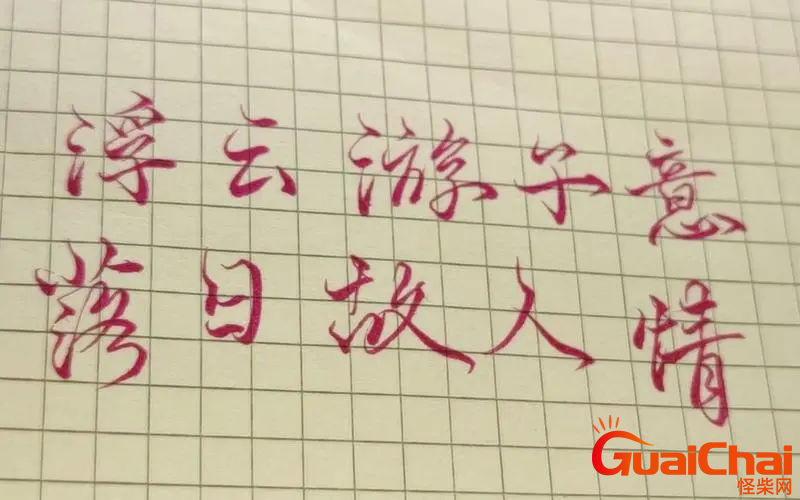 浮云游子意
落日故人情
GuaiChai
怪柴网